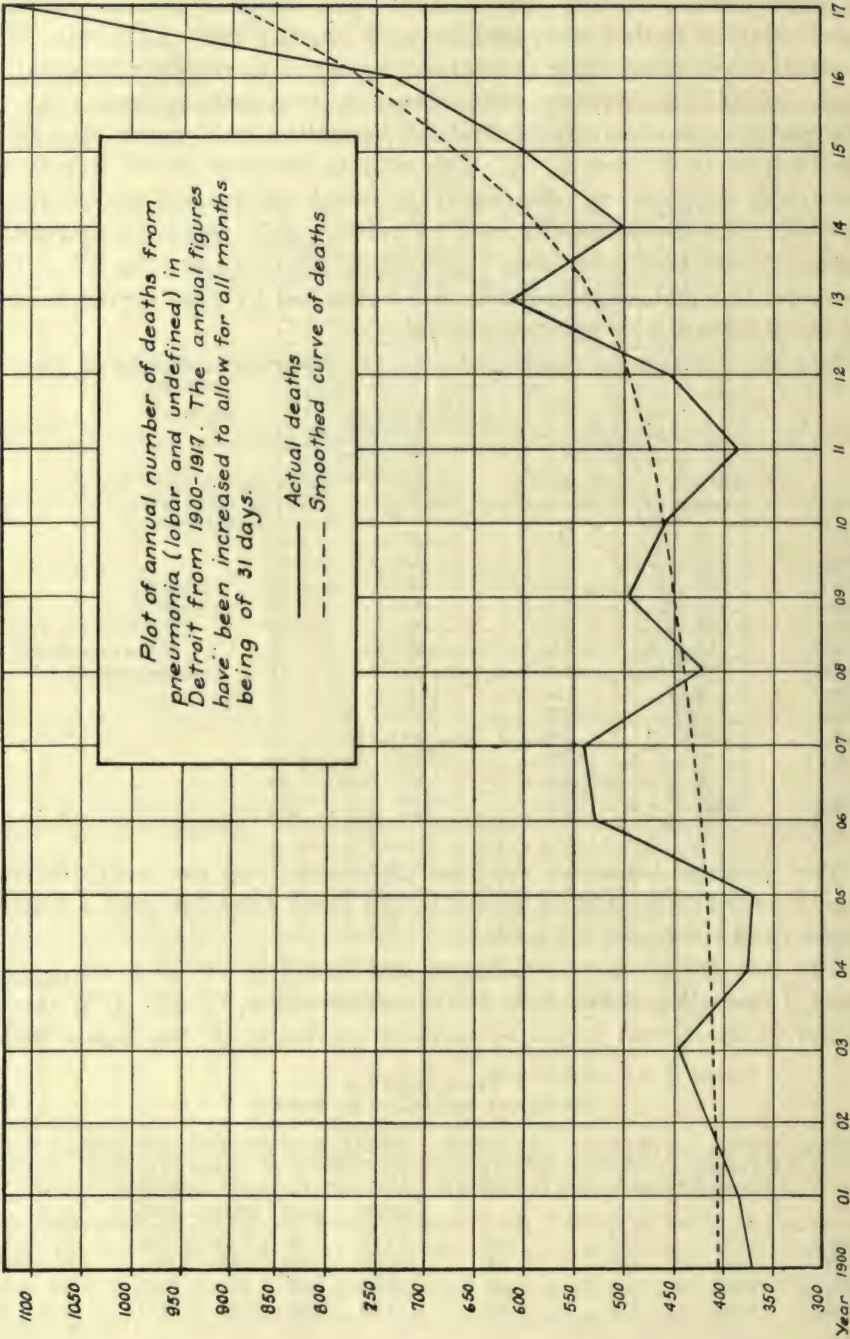 Plot of annual number of deaths from
pneumonia (lobar and undefined) in
Detroit from 1900-1917. The annual figures
have been increased to allow for all months
being of 31 days.
Actual deaths
Smoothed curve of deaths
1100
1050
1000
950
900
850
800
750
700
650
600
550
500
450
400
350
300
Year 1900 01 02 03 04 05 06 07 08 09 10 11 12 13 14 15 16 17